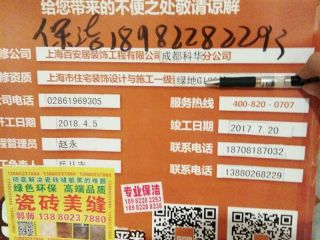 给您带来的不便之处敬请谅解
保洁18982283293
修公司 上海百安居装饰工程有限公司成都科华分公司
修资质 上海市住宅装饰设计与施工一级 绿地GL
公司电话 02861969305 服务热线 400-820-0707
开工日期 2018.4.5 竣工日期 2017.7.20
程管理员 赵永 联系电话 18708187032
联系电话 13880268229
彻底解决瓷砖缝脏黑的难题
绿色环保 高端品质
瓷砖美缝
郭师 138 8023 7880
专业保洁